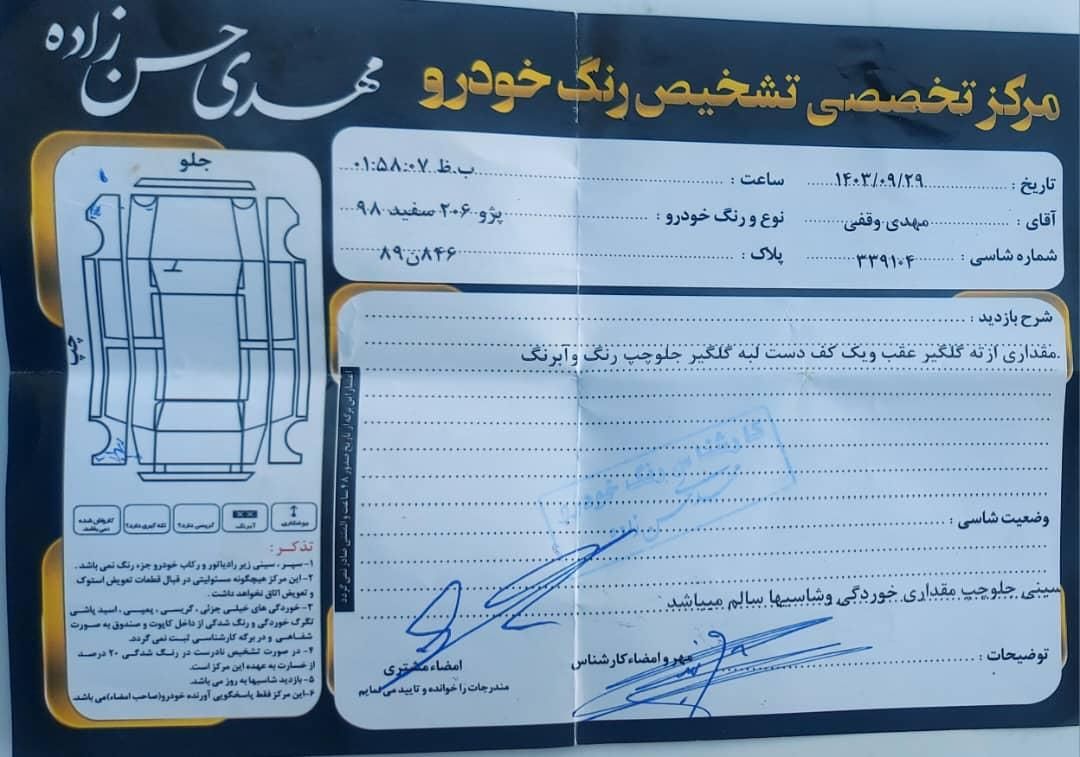 مهدی حسن زاده
مرکز تخصصی تشخیص رنگ خودرو
تاریخ : ۱۴۰۳/۰۹/۲۹
ساعت : ۰۱:۵۸:۰۷ ب.ظ
آقای : مهدی وقفی
نوع و رنگ خودرو : پژو ۲۰۶ سفید ۹۸
شماره شاسی : ۳۳۹۱۰۴
پلاک : ۸۴۶ن۸۹
شرح بازدید :
.مقداری ازته گلگیر عقب ویک کف دست لبه گلگیر جلوچپ رنگ وآبرنگ
کارشناس رنگ خودرو
وضعیت شاسی :
سینی جلوچپ مقداری خوردگی وشاسیها سالم میباشد
توضیحات :
مهر و امضاء کارشناس
امضاء مشتری
مندرجات را خوانده و تایید می نمایم
اعتبار این برگه از تاریخ صدور ۴۸ ساعت و المثنی صادر نمی گردد
جلو
چپ
جوشکاری
آبرنگ
گریسی دارد؟
لکه گیری دارد؟
کارواش شده نمی باشد
تذکر :
۱- سپر ، سینی زیر رادیاتور و رکاب خودرو جزء رنگ نمی باشد .
۲- این مرکز هیچگونه مسئولیتی در قبال قطعات تعویض استوک
و تعویض اتاق نخواهد داشت .
۳- خوردگی های خیلی جزئی ، گریسی ، پمپی ، اسید پاشی
تگرگ خوردگی و رنگ شدگی از داخل کاپوت و صندوق به صورت
شفاهی و در برگه کارشناسی ثبت نمی گردد.
۴- در صورت تشخیص نادرست در رنگ شدگی ۲۰ درصد
از خسارت به عهده این مرکز است.
۵- بازدید شاسیها به روز می باشد.
۶- این مرکز فقط پاسخگویی آورنده خودرو(صاحب امضاء)می باشد.